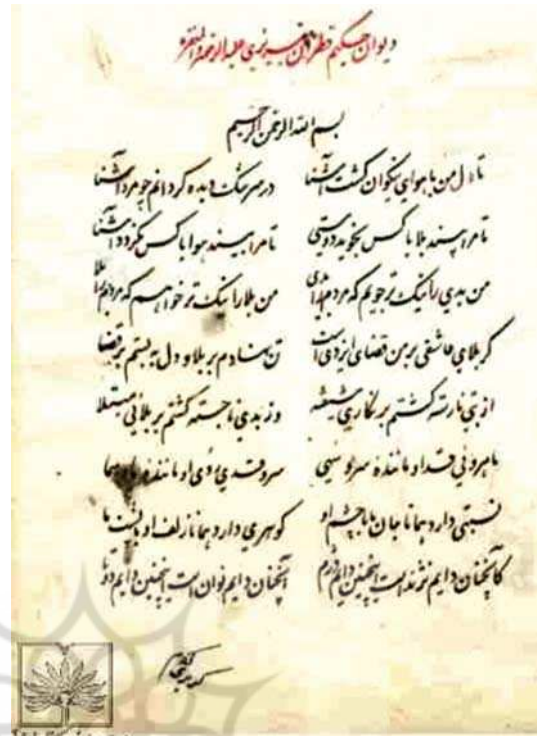 دیوان حکیم قطران تبریزی علیه الرحمة و المغفرة
بسم الله الرحمن الرحیم
تا دل من با هوای نیکوان گشت آشنا در سرشک دیده گردانم چو مرد آشنا
تا مرا بیند بلا با کس نجوید دوستی تا مرا بیند هوا با کس نگردد آشنا
من بدی را نیک تر جویم که مردم من بلا را نیک تر خواهم که مردم
گر بلای عاشقی بر من قضای ایزدی است تن نهادم بر بلا و دل ببستم بر قضا
از بتی نارسته گشتم بر نگاری شیفته وز بدی ناجسته گشتم بر بلائی مبتلا
ماهروئی قد او ماننده سرو سهی سرو قدی روی او ماننده
نسبتی دارد همانا جان ما با چشم او گوهری دارد همانا زلف او با پشت ما
کانچنان دایم نژند است اینچنین دایم دژم آنچنان دایم نوان است اینچنین دایم دوتا